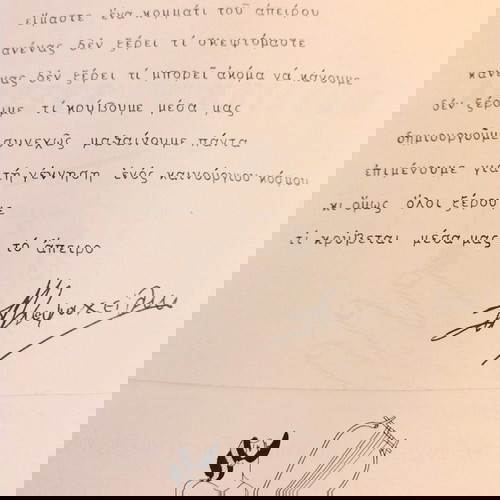 εἴμαστε ἕνα κομμάτι τοῦ ἀπείρου
κανένας δὲν ξέρει τί σκεφτόμαστε
κανένας δὲν ξέρει τί μπορεῖ ἀκόμα νά κάνουμε
δέν ξέρουμε τί κρύβουμε μέσα μας
δημιουργοῦμε συνεχῶς μαθαίνουμε πάντα
ἐπιμένουμε γιά τή γέννηση ἑνός καινούργιου κόσμου
κι ὅμως ὅλοι ξέρουμε
τί κρύβεται μέσα μας
τό ἄπειρο